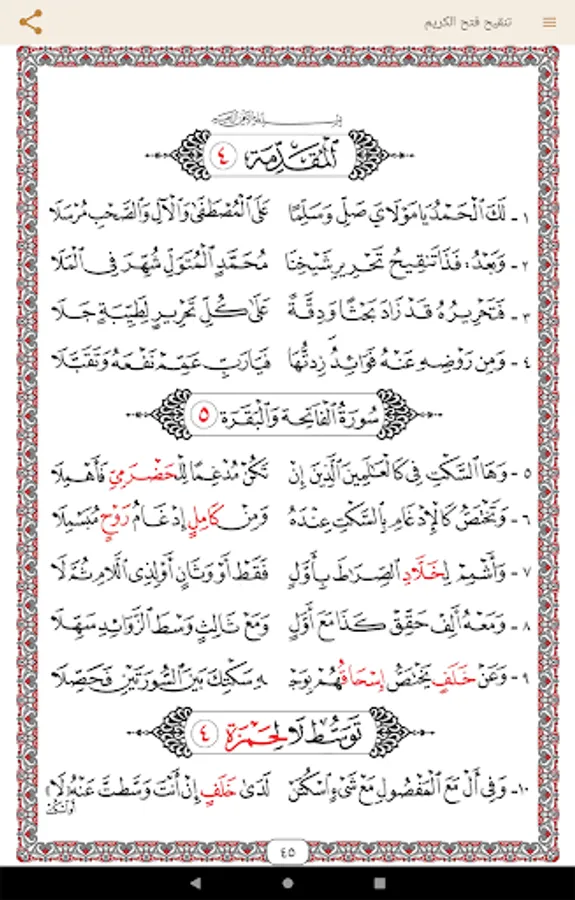 تنقيح فتح الكريم
بسم الله الرحمن الرحيم
الْمُقَدِّمَة ٤
١- لَكَ الْحَمْدُ يَا مَوْلَايَ صَلِّ وَسَلِّمًا عَلَى الْمُصْطَفَى وَالْآلِ وَالصَّحْبِ مُرْسَلَا
٢- وَبَعْدُ: فَذَا تَنْقِيحُ تَحْرِيرِ شَيْخِنَا مُحَمَّدٍ الْمُتَوَلِّ شُهِّرَ فِي الْمَلَا
٣- فَتَحْرِيرُهُ قَدْ زَادَ بَحْثًا وَدِقَّةً عَلَى كُلِّ تَحْرِيرٍ لِطَيِّبَةٍ جَلَا
٤- وَمِن رَوْضِهِ عَنْهُ فَوَائِدُ زِدتُّهَا فَيَا رَبِّ عَمِّمْ نَفْعَهُ وَتَقَبَّلَا
سُورَةُ الْفَاتِحَة وَالْبَقَرَة ٥
٥- وَهَا السَّكْتِ فِي كَالْعَالَمِينَ الَّذِينَ إِنْ تَكُنْ مُدْغِمًا لِلْحَضْرَمِيِّ فَأَهْمِلَا
٦- وَيَخْتَصُّ كَالْإِدْغَامِ بِالسَّكْتِ عِنْدَهُ وَمِنْ كَامِلٍ إِدْغَامُ رَوْحٍ مُبَسْمِلَا
٧- وَأَشْمِمْ لِخَلَّادِ الصِّرَاطَ بِأَوَّلٍ فَقَطْ أَوْ وَثَانٍ أَوْ لِذِي اللَّامِ ثُمَّ لَا
٨- وَمَعْهُ أَلِفْ حَقِّقْ كَذَا مَعَ أَوَّلٍ وَمَعَ ثَالِثٍ وَسِّطَ الزَّوَائِدِ سَهِّلَا
٩- وَعَنْ خَلَفٍ يَخْتَصُّ إِسْحَاقُهُمْ بِوَجْـ ـهِ سَكْتِكَ بَيْنَ السُّورَتَيْنِ فَحَصِّلَا
تَوَسُّطُ لَا لِحَمْزَة ٤
١٠- وَفِي أَلْ مَعَ الْمَفْصُولِ مَعْ شَيْءٍ اسْكُتَنْ لَدَى خَلَفٍ إِنْ أَنْتَ وَسَّطتَّ عَنْهُ (لَا)
٤٥